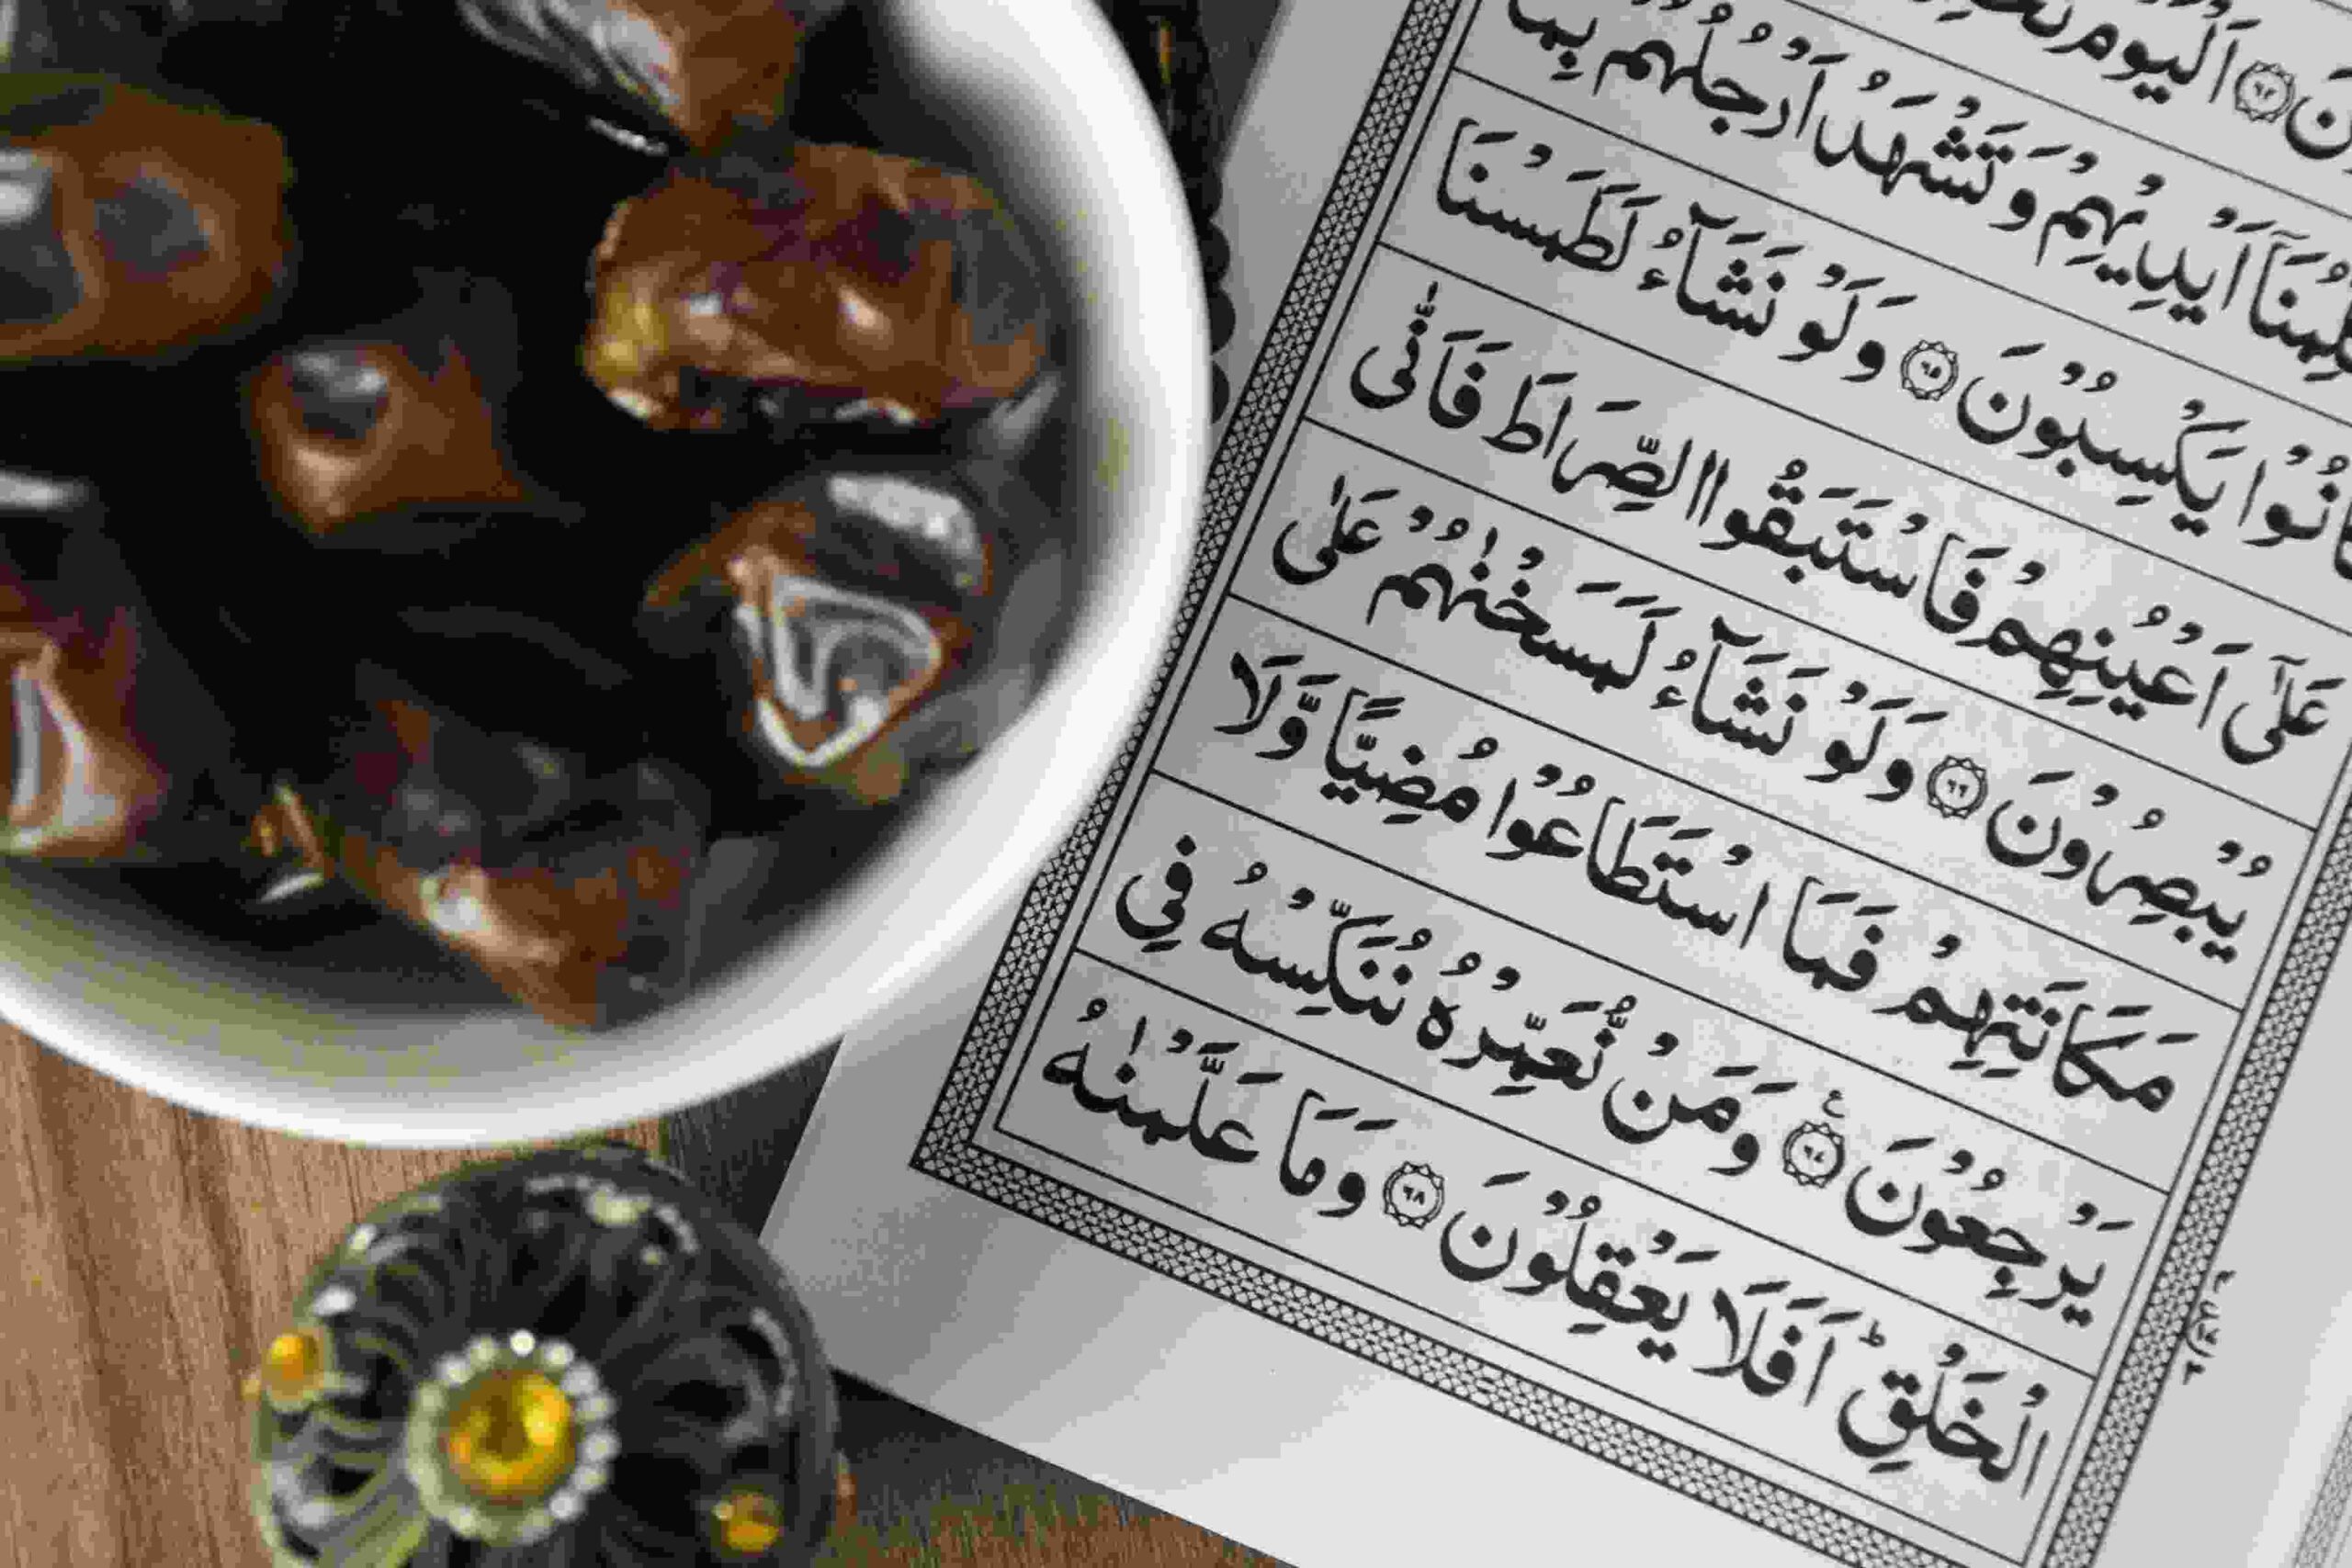 نَ ﴿٦٤﴾ اَلْيَوْمَ
اَيْدِيْهِمْ وَتَشْهَدُ اَرْجُلُهُمْ بِمَا
كَانُوْا يَكْسِبُوْنَ ﴿٦٥﴾ وَلَوْ نَشَآءُ لَطَمَسْنَا
عَلٰٓى اَعْيُنِهِمْ فَاسْتَبَقُوا الصِّرَاطَ فَاَنّٰى
يُبْصِرُوْنَ ﴿٦٦﴾ وَلَوْ نَشَآءُ لَمَسَخْنٰهُمْ عَلٰى
مَكَانَتِهِمْ فَمَا اسْتَطَاعُوْا مُضِيًّا وَّلَا
يَرْجِعُوْنَ ﴿٦٧﴾ وَمَنْ نُّعَمِّرْهُ نُنَكِّسْهُ فِي
الْخَلْقِ ؕ اَفَلَا يَعْقِلُوْنَ ﴿٦٨﴾ وَمَا عَلَّمْنٰهُ